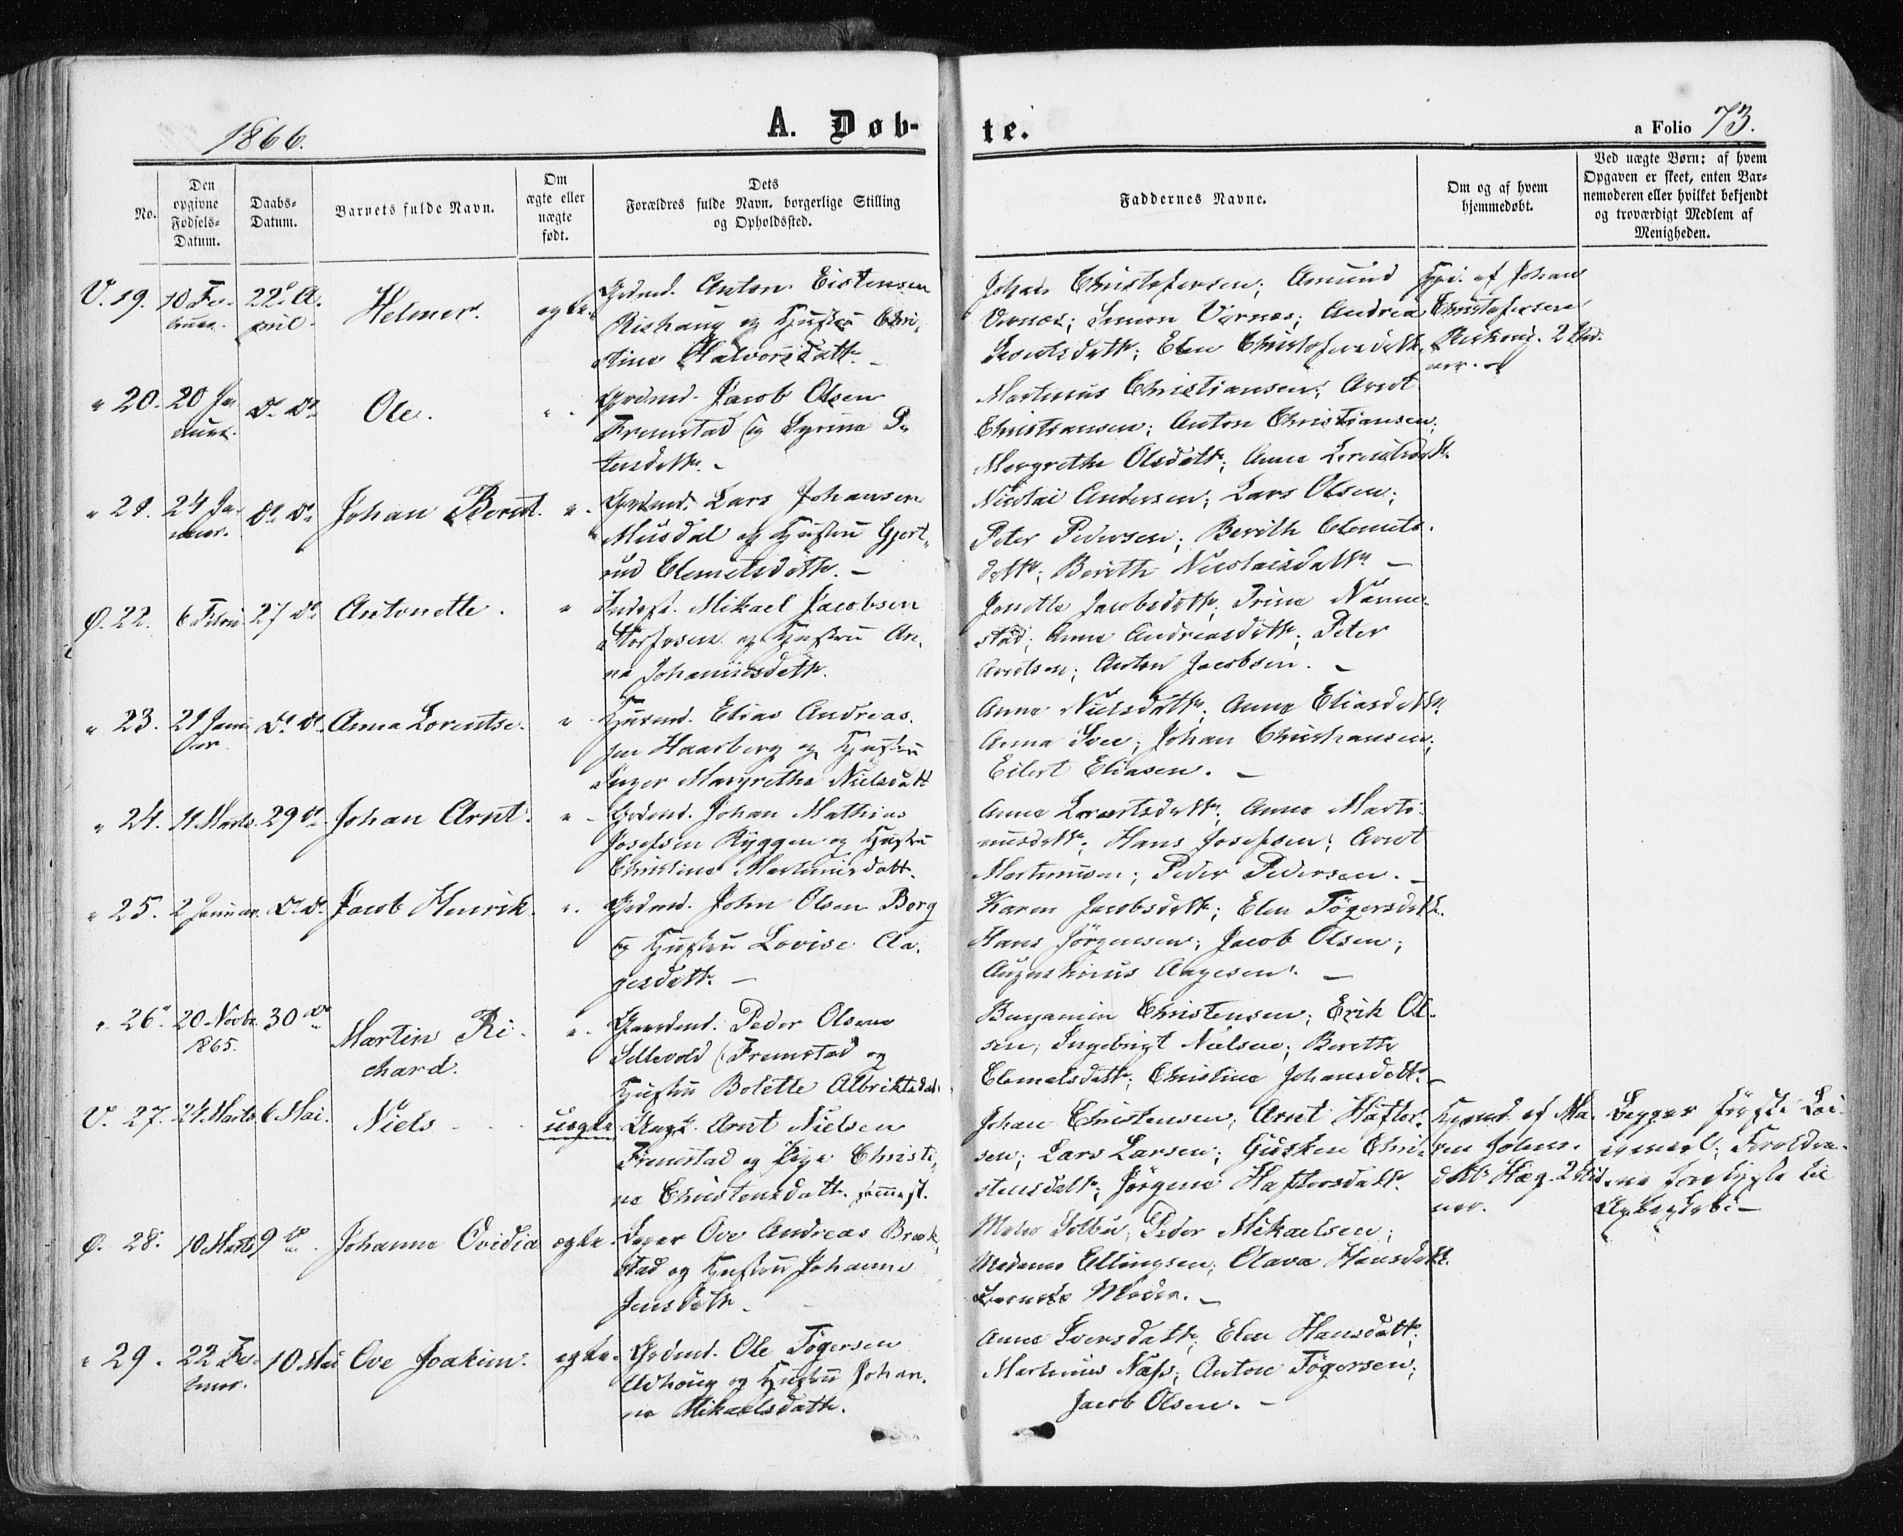 1866.
A. Døb-
te.
a Folio 73.
No.
Den
opgivne
Fødsels-
Datum.
Daabs-
Datum.
Barnets fulde Navn.
Om
ægte eller
uægte
født.
Dets
Forældres fulde Navn, borgerlige Stilling
og Opholdssted.
Faddernes Navne.
Om og af hvem
hjemmedøbt.
Ved uægte Børn: af hvem
Opgaven er skeet, enten Bar-
nemoderen eller hvilket bekjendt
og troværdigt Medlem af
Menigheden.
V. 19.
10 Fe-
bruar.
22de A-
pril.
Helmer.
ægte
Grdmd. Anton Eistensen
Rishaug og Hustru Chri-
stine Halvorsdatt.
Johan Christofersen; Amund
Vernæs; Simon Vernæs; Andrea
Lorentsdatt.; Elen Christofersdatt.
af Johan
Christofersen
" 20.
20 Ja-
nuar.
do do
Ole.
"
Grdmd. Jacob Olsen
Fremstad og Syrina P-
tersdatt.
Martinus Christiansen; Arnt
Christiansen; Anton Christiansen;
Margrethe Olsdatt.; Anne Lorentsdatt.
" 21.
24 Ja-
nuar.
do do
Johan Bernt.
"
Grdmd. Lars Johansen
Musdal og Hustru Gjert-
rud Clemetsdatt.
Nicolai Andersen; Lars Olsen;
Peter Pedersen; Berith Clemets-
datt.; Berith Nicolaisdatt.
Ø. 22.
6 Febru
27 do
Antonette.
"
Inderst. Mikael Jacobsen
Storfosen og Hustru An-
na Johannesdatt.
Jonette Jacobsdatt.; Trine Nanne-
stad; Anne Andreasdatt.; Peter
Arntsen; Anton Jacobsen.
" 23.
21 Janu
ar
do do
Anna Lorentse.
"
Husmd. Elias Andreas-
sen Haarberg og Hustru
Inger Margrethe Nielsdatt
Anne Nielsdatt.; Anne Eliasdatt.
Anna Iver; Johan Christiansen;
Eilert Eliasen.
" 24.
11 Marts
29 do
Johan Arnt.
"
Grdmd. Johan Mathias
Josefsen Ryggen og Hustru
Christine Martinusdatt.
Anne Lorentsdatt.; Anne Marti-
nusdatt.; Hans Josefsen; Arnt
Martinusen; Peder Pedersen.
" 25.
2 Januar.
do do
Jacob Henrik.
"
Grdmd. John Olsen Berg
og Hustru Lovise Aa-
gesdatt.
Karen Jacobsdatt.; Elen Tøgersdatt.
Hans Jørgensen; Jacob Olsen;
Augustinus Aagesen.
" 26.
20 Novbr.
1865.
30 do
Martin Ri-
chard.
"
Gaardmd. Peder Olsen
Sellevold (Fremstad og
Hustru Bolette Albriktsdat
Benjamin Christensen; Erik Ol-
sen; Ingebrigt Nielsen; Berethe
Clemetsdatt.; Christine Johansdatt.
V. 27.
24 Marts
6 Mai.
Niels
uægte
Ungk. Arnt Nielsen
Fremstad og Pige Christi-
ne Christensdatt. sammest.
Johan Christensen; Arnt Haftor-
sen; Lars Larsen; Gusken Chri-
stensdatt.; Jørgine Haftorsdatt.
Hjemd. af Ma-
ren
Begges første Lei-
ermaal; Foreldre-
ne til
Ø. 28.
10 Marts
9 do
Johanna Ovidia
ægte
Ove Andreas Bræk-
stad og Hustru Johanna
Jensdatt.
Peder Mikaelsen;
Madame Ellingsen; Olava Hansdatt.
Barnets Moder.
" 29.
22 Fe-
bruar.
10 Mai
Ove Joakim.
ægte
Grdmd. Ole Tøgersen
Udhoug og Hustru Johan-
na Mikaelsdatt.
Anne Iversdatt.; Elen Hansdatt.;
Martinus Næss; Anton Tøgersen;
Jacob Olsen.